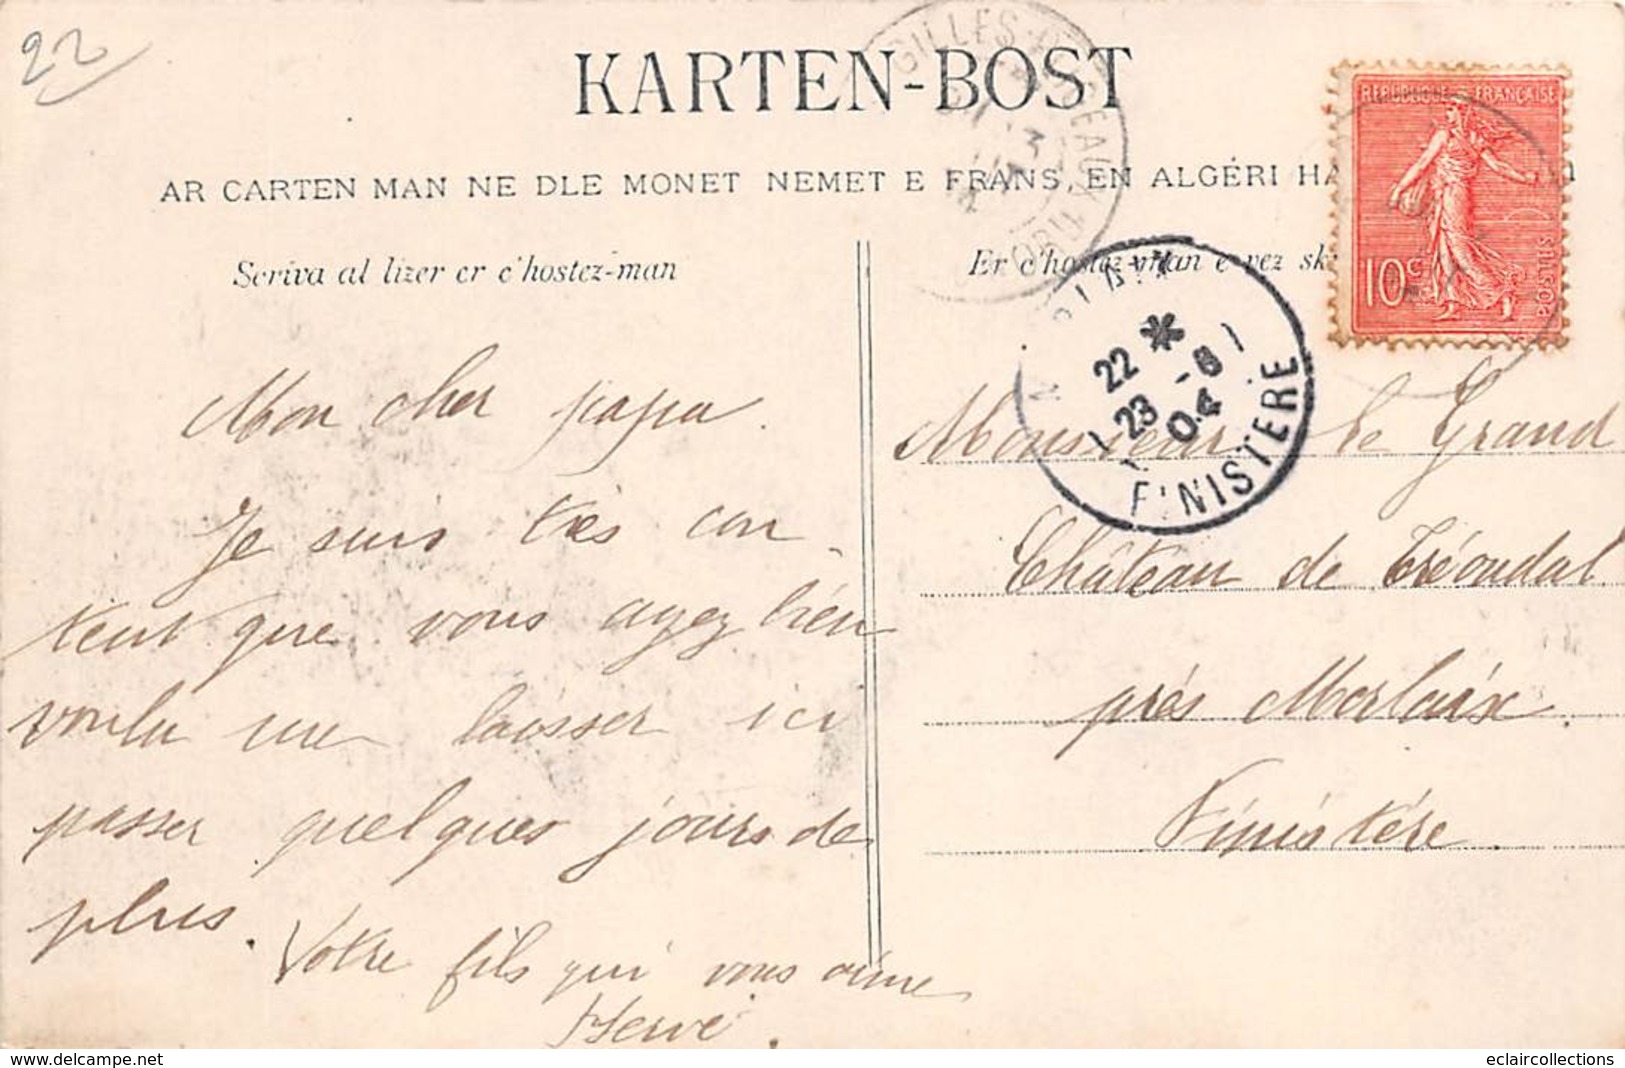 22
KARTEN-BOST
AR CARTEN MAN NE DLE MONET NEMET E FRANS, EN ALGÉRI
Scriva al lizer er c'hostez-man
Er c'hostez-man e vez
REPUBLIQUE FRANÇAISE
10c
FINISTERE
22
23 -8
04
Mon cher papa.
Je suis très con-
tent que vous ayez bien
voulu me laisser ici
passer quelques jours de
plus.
Votre fils qui vous aime
Hervé.
Monsieur Le Grand
Château de Tréoudal
près Morlaix.
Finistère.
eclaircollections